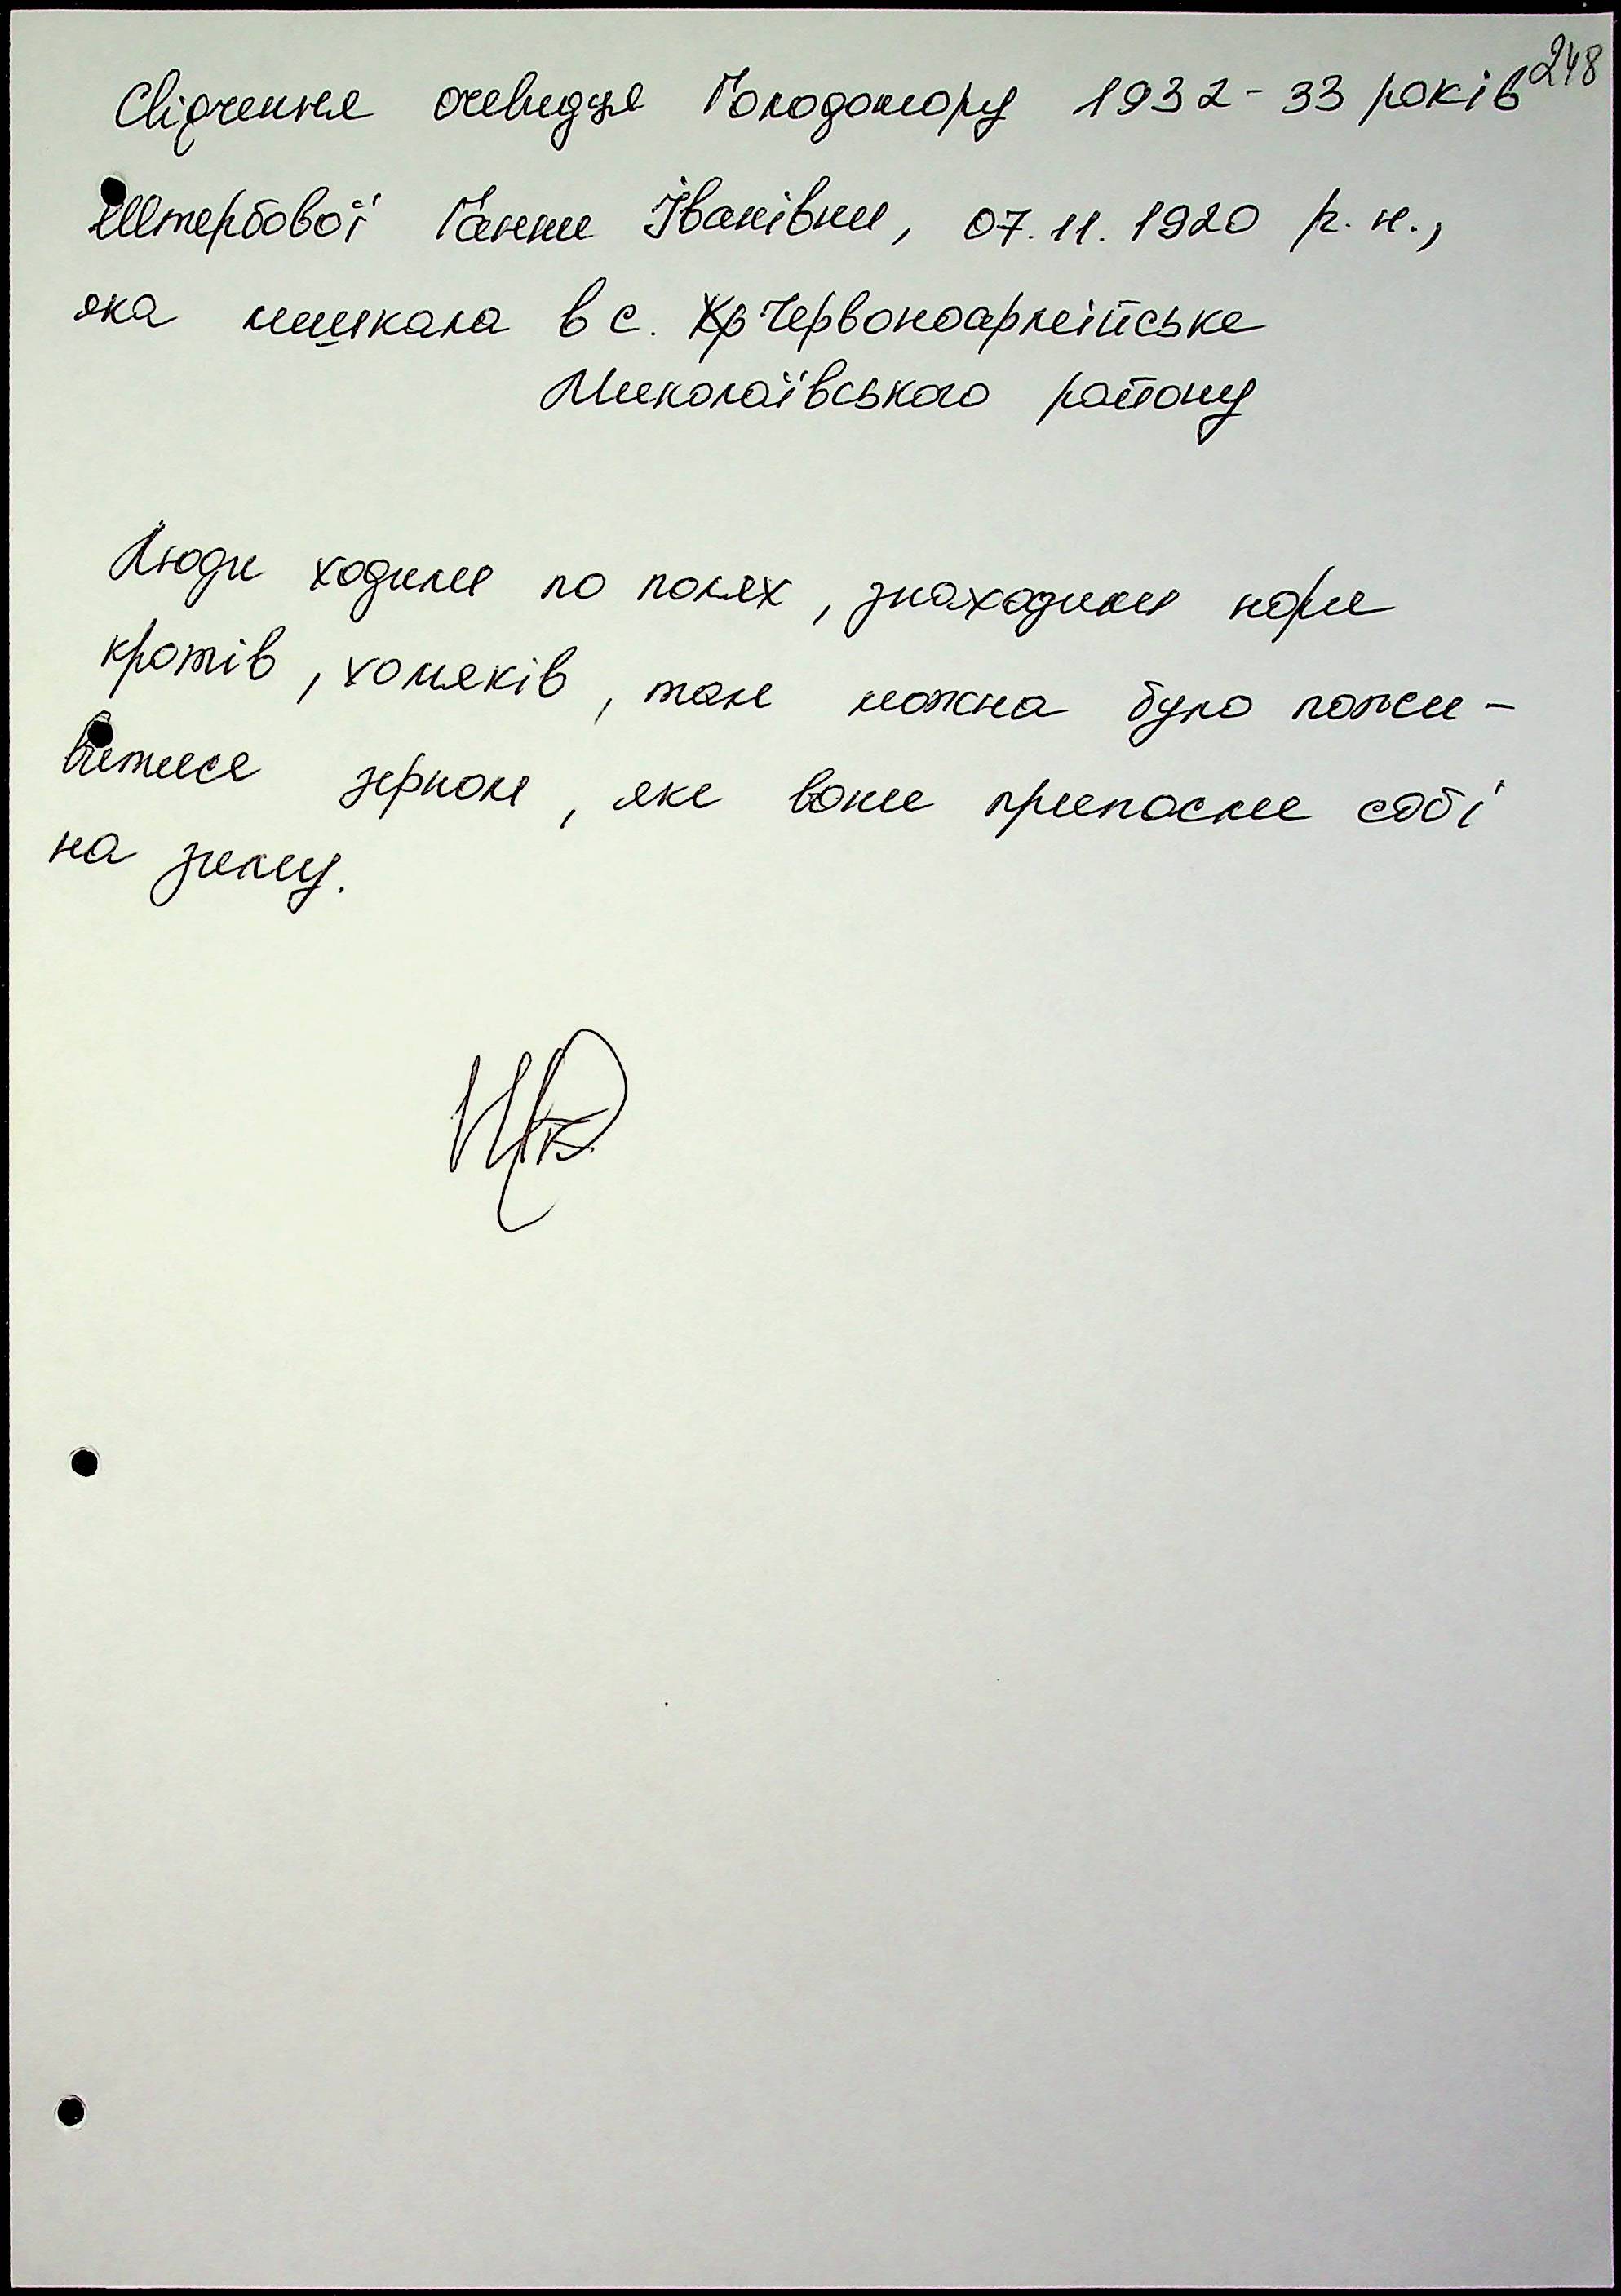 248
Свідчення очевидця Голодомору 1932-33 років
Штербової Ганни Іванівни, 07.11.1920 р.н.,
яка мешкала в с. Червоноармійське
Миколаївського району
Люди ходили по полях, знаходили нори
кротів, хомяків, там можна було пожи-
витися зерном, яке вони припасли собі
на зиму.